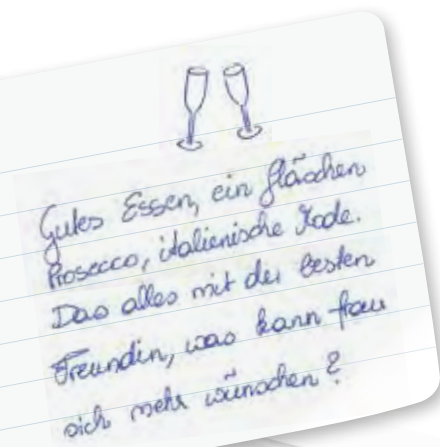 Gutes Essen, ein Fläschchen
Prosecco, italienische Mode.
Das alles mit der besten
Freundin, was kann frau
sich mehr wünschen?